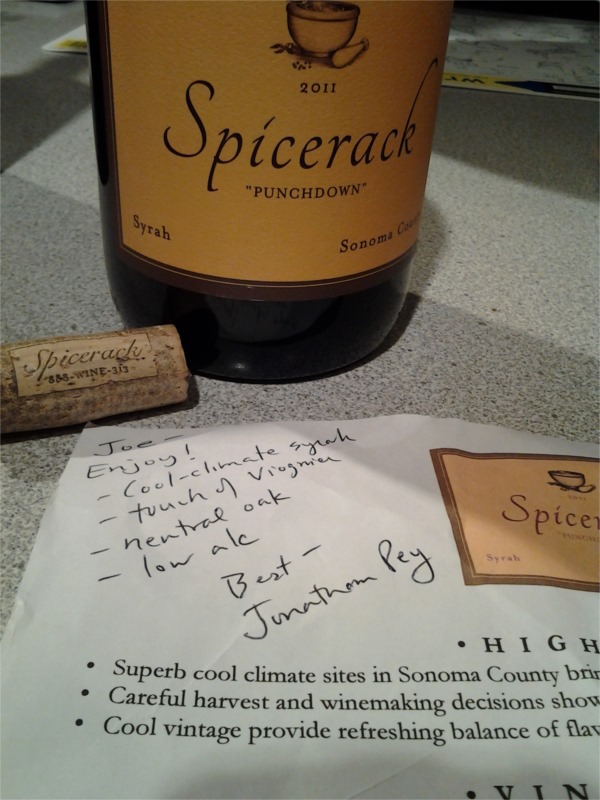 2011
Spicerack
"PUNCHDOWN"
Syrah
Sonoma
Spicerack
888-WINE-313
Joe-
Enjoy!
- Cool-climate syrah
- touch of Viognier
- neutral oak
- low alc
Best -
Jonathan Pey
2011
Spicer
Syrah
• HIGH
• Superb cool climate sites in Sonoma County brin
• Careful harvest and winemaking decisions show
• Cool vintage provide refreshing balance of flav
• VIN